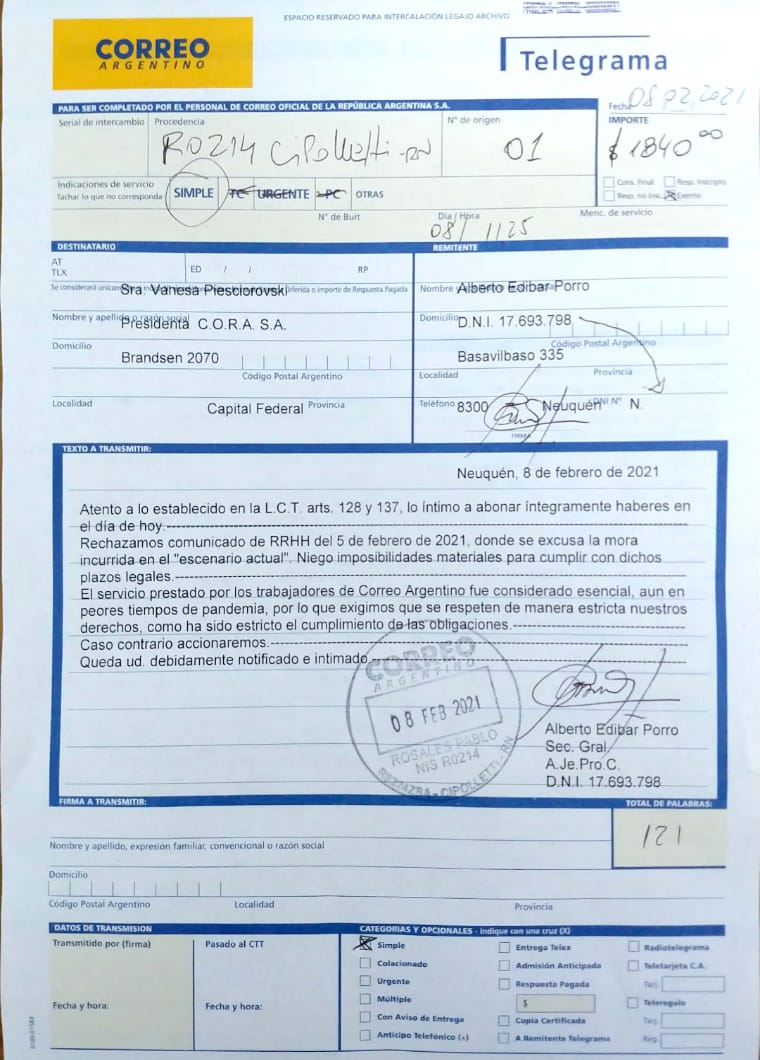 ESPACIO RESERVADO PARA INTERCALACIÓN LEGAJO ARCHIVO
CORREO
ARGENTINO
Telegrama
PARA SER COMPLETADO POR EL PERSONAL DE CORREO OFICIAL DE LA REPÚBLICA ARGENTINA S.A.
Fecha 08 02, 2021
Serial de intercambio Procedencia N° de origen IMPORTE
R0214 Cipolletti -RN 01 $ 1840 00
Cons. Final Resp. Inscripto
Resp. no Insc. Exento
Indicaciones de servicio
Tachar lo que no corresponda SIMPLE TC URGENTE PC OTRAS
N° de Buit Día / Hora Menc. de servicio
08/ 1125
DESTINATARIO REMITENTE
AT
TLX ED / / RP
Se considerará Diferida o Importe de Respuesta Pagada
Sra. Vanesa Piesciorovski
Nombre y Alberto Edibar Porro
Nombre y apellido o razón social
Presidenta C.O.R.A. S.A.
Domicilio D.N.I. 17.693.798
Código Postal Argentino
Domicilio
Brandsen 2070
Código Postal Argentino
Basavilbaso 335
Localidad Provincia
Localidad Capital Federal Provincia
Teléfono 8300 Neuquén DNI N° N.
FIRMA
TEXTO A TRANSMITIR:
Neuquén, 8 de febrero de 2021
Atento a lo establecido en la L.C.T. arts. 128 y 137, lo íntimo a abonar íntegramente haberes en
el día de hoy.---
Rechazamos comunicado de RRHH del 5 de febrero de 2021, donde se excusa la mora
incurrida en el "escenario actual". Niego imposibilidades materiales para cumplir con dichos
plazos legales.---
El servicio prestado por los trabajadores de Correo Argentino fue considerado esencial, aun en
peores tiempos de pandemia, por lo que exigimos que se respeten de manera estricta nuestros
derechos, como ha sido estricto el cumplimiento de las obligaciones.---
Caso contrario accionaremos.---
Queda ud. debidamente notificado e intimado.---
CORREO
ARGENTINO
08 FEB 2021
ROSALES PABLO
NIS R0214
R8324ZBA - CIPOLLETTI - RN
Alberto Edibar Porro
Sec. Gral.
A.Je.Pro.C.
D.N.I. 17.693.798
FIRMA A TRANSMITIR: TOTAL DE PALABRAS:
121
Nombre y apellido, expresión familiar, convencional o razón social
Domicilio
Código Postal Argentino Localidad Provincia
DATOS DE TRANSMISION CATEGORIAS Y OPCIONALES - Indique con una cruz (X)
Transmitido por (firma) Pasado al CTT
Fecha y hora: Fecha y hora:
Simple Entrega Telex Radiotelegrama
Colacionado Admisión Anticipada Teletarjeta C.A.
Urgente Respuesta Pagada Tarj.
Múltiple $ Teleregalo
Con Aviso de Entrega Copia Certificada Tarj.
Anticipo Telefónico (*) A Remitente Telegrama Reg.